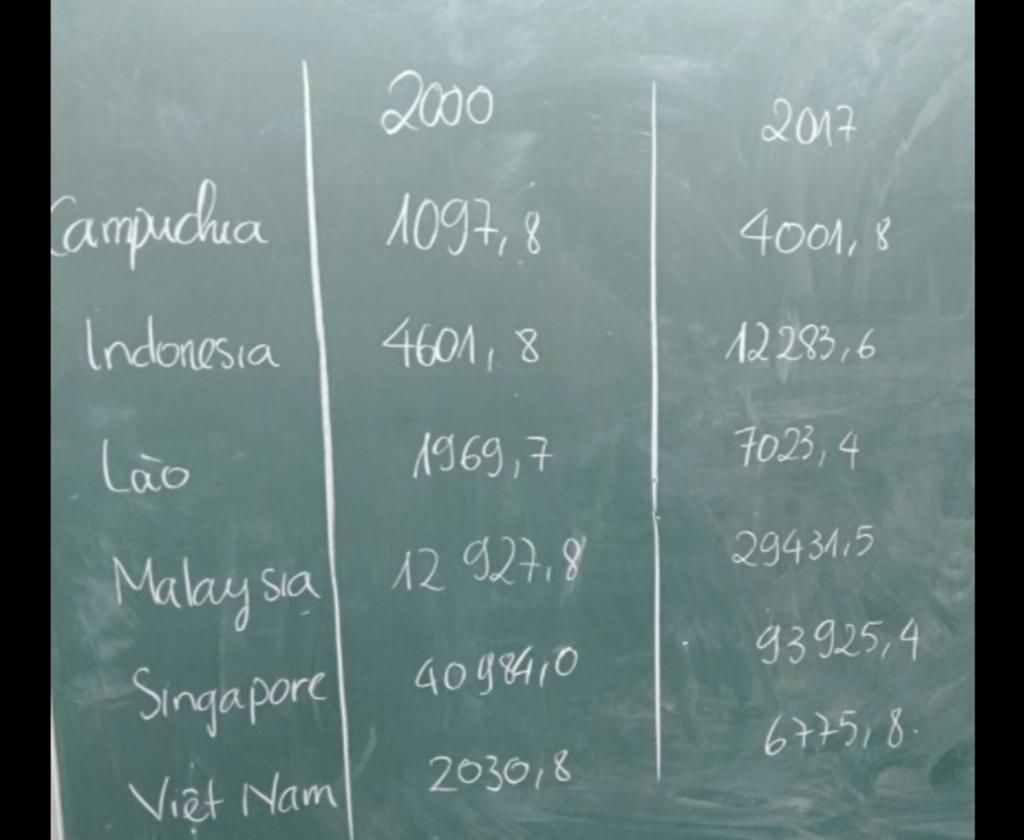 2000 2017
Campuchia 1097,8 4001,8
Indonesia 4601,8 12283,6
Lào 1969,7 7023,4
Malaysia 12 927,8 29431,5
Singapore 40984,0 93925,4
Việt Nam 2030,8 6775,8.